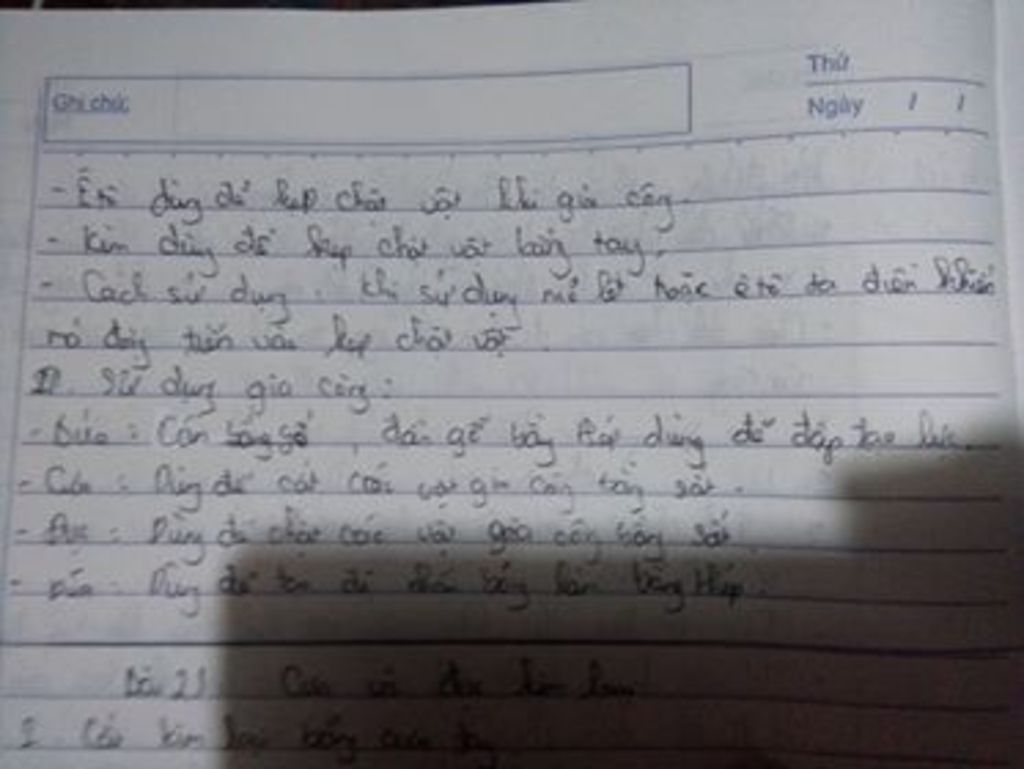 Ghi chú:
Thứ
Ngày / /
- Êtô dùng để kẹp chặt vật khi gia công.
- Kìm dùng để kẹp chặt vật bằng tay.
- Cách sử dụng : Khi sử dụng mỏ lết hoặc êtô ta điều khiển
mỏ động tiến vào kẹp chặt vật.
II. Sử dụng gia công:
- Búa : Cán bằng gỗ, đầu gỗ bằng thép dùng để đập tạo lực.
- Cưa : Dùng để cắt các vật gia công bằng sắt.
- Đục : Dùng để chặt các vật gia công bằng sắt.
- Dũa : Dùng để bằng thép.
Bài 21 Cưa và đục kim loại
I. Cắt kim loại bằng cưa tay